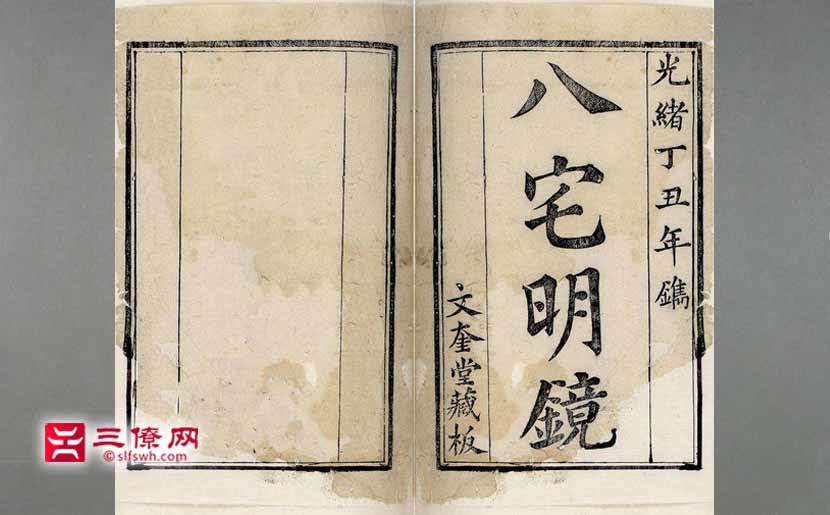 光緒丁丑年鐫
八宅明鏡
文奎堂藏板
三僚网
© slfswh.com